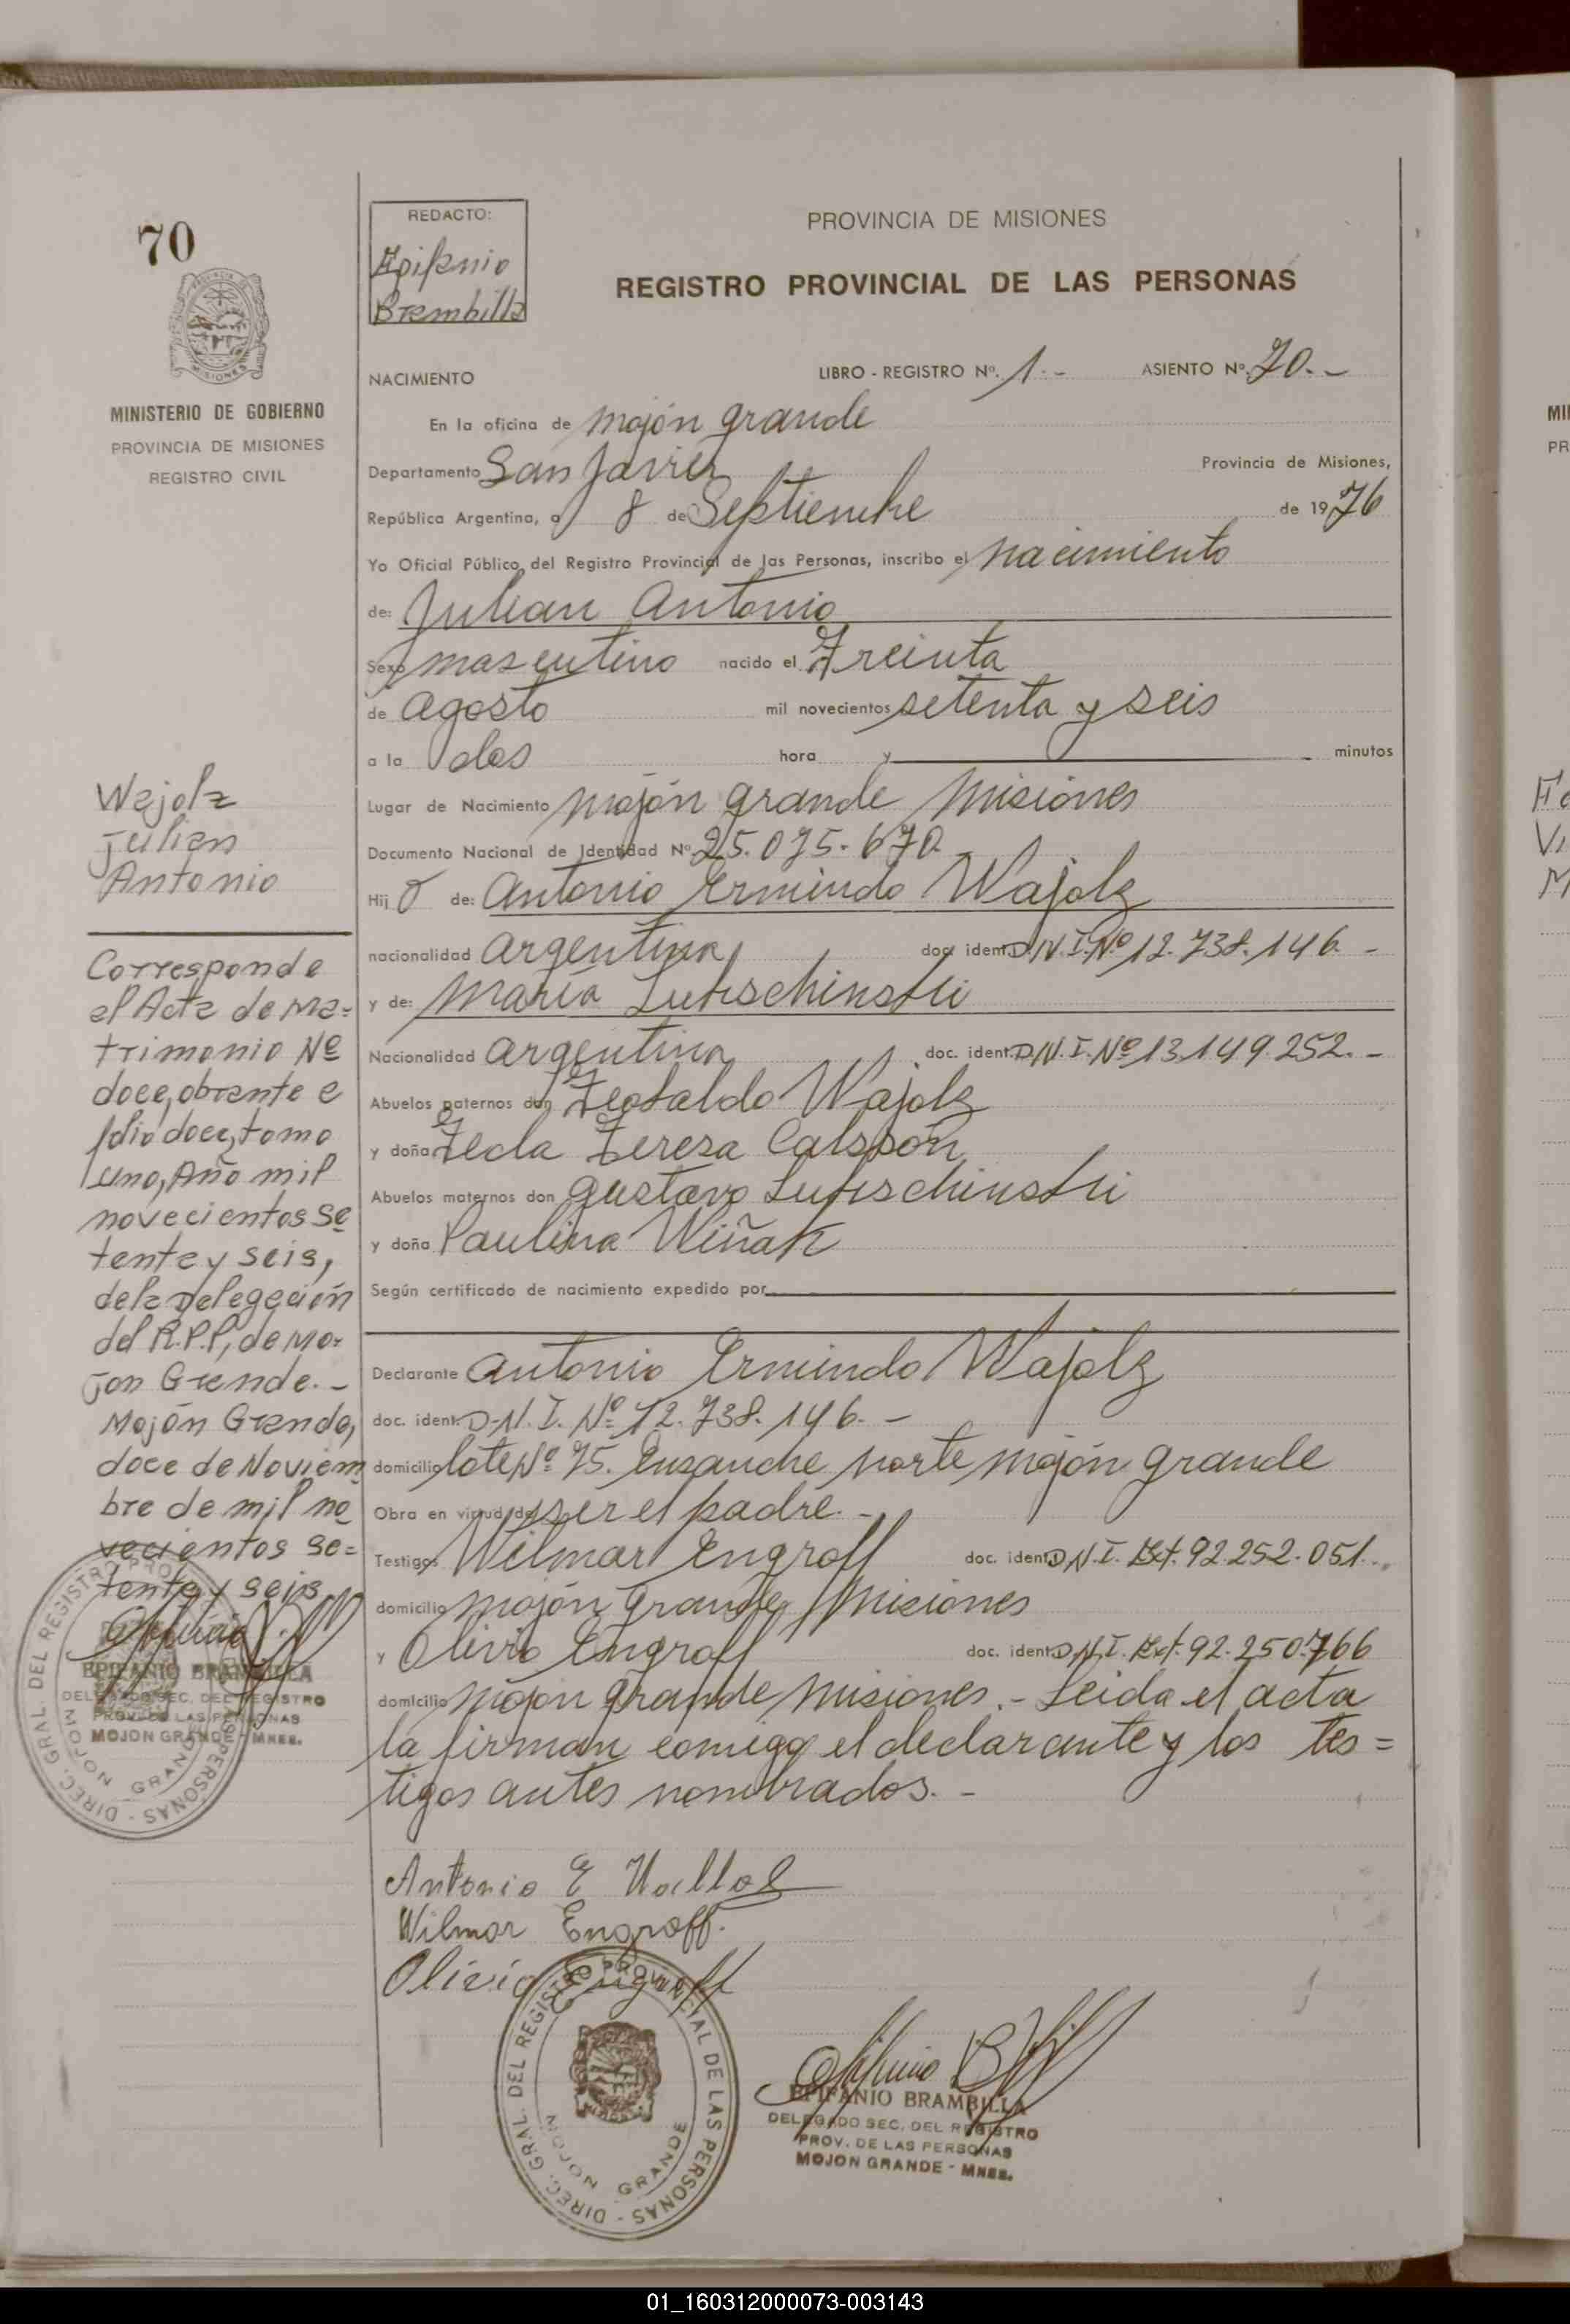 70
MINISTERIO DE GOBIERNO
PROVINCIA DE MISIONES
REGISTRO CIVIL
REDACTO:
Epifanio
Brembilla
PROVINCIA DE MISIONES
REGISTRO PROVINCIAL DE LAS PERSONAS
NACIMIENTO LIBRO - REGISTRO Nº. 1.- ASIENTO Nº. 70.-
En la oficina de Mojón grande
Departamento San Javier Provincia de Misiones,
República Argentina, a 8 de Septiembre de 1976
Yo Oficial Público del Registro Provincial de las Personas, inscribo el nacimiento
de: Julian Antonio
Sexo masculino nacido el Treinta
de agosto mil novecientos setenta y seis
a la dos hora y minutos
Lugar de Nacimiento Mojón grande Misiones
Documento Nacional de Identidad Nº 25.075.670
Hij o de: Antonio Ermindo Wajolz
nacionalidad argentina doc ident. D.N.I. Nº 12.738.146.-
y de: María Lubischinski
Nacionalidad argentina doc. ident. D.N.I. Nº 13.149.252.-
Abuelos paternos don Teobaldo Wajolz
y doña Tecla Tereza Calsson
Abuelos maternos don Gustavo
y doña Paulina Wiñak
Según certificado de nacimiento expedido por
Declarante Antonio Ermindo Wajolz
doc. ident. D.N.I. Nº 12.738.146.-
domicilio lote Nº 75. Ensanche norte Mojón grande
Obra en virtud de ser el padre.-
Testigos Wilmar Engroff doc. ident. D.N.I. Ext. 92.252.051.
domicilio Mojón grande, Misiones
y Olivio Engroff doc. ident. D.N.I. Ext. 92.250.766
domicilio Mojón grande, Misiones.- Leida el acta
la firman comigo el declarante y los tes=
tigos antes nombrados.-
Antonio E
Wilmar Engroff.
Olivio Engroff
DIREC. GRAL. DEL REGISTRO PROVINCIAL DE LAS PERSONAS
MOJON GRANDE
EPIFANIO BRAMBILLA
DELEGADO SEC. DEL REGISTRO
PROV. DE LAS PERSONAS
MOJON GRANDE - MNES.
Wajolz
Julian
Antonio
Corresponde
al Acta de Ma=
trimonio Nº
doce, obrante a
folio doce, tomo
uno, Año mil
novecientos se
tenta y seis,
dela Delegación
del R.P.P, de Mo=
jon Grande.-
Mojón Grande,
doce de Noviem
bre de mil no
vecientos se=
tenta y seis
EPIFANIO BRAMBILLA
DELEGADO SEC. DEL REGISTRO
PROV. DE LAS PERSONAS
MOJON GRANDE - MNES.
DIREC. GRAL. DEL REGISTRO
PERSONAS
MOJON GRANDE
MI
PR
01_160312000073-003143